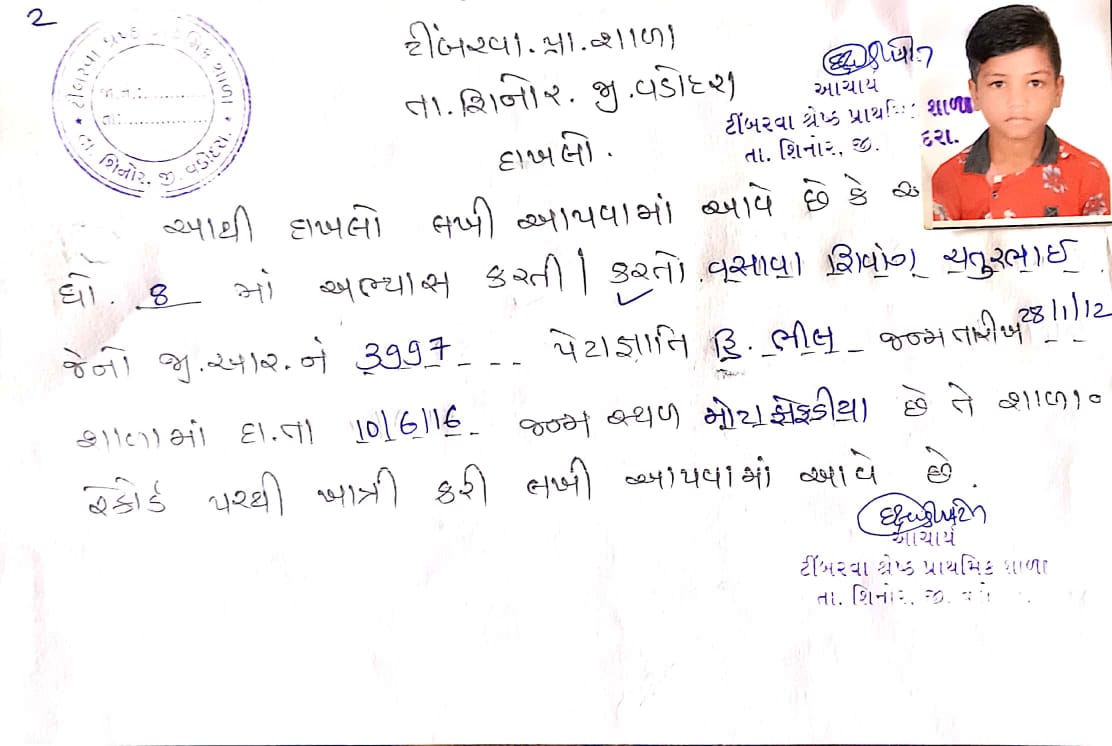 2
ટીંબરવા.પ્રા.શાળા
તા.શિનોર. જી.વડોદરા
દાખલો.
આચાર્ય
ટીંબરવા શ્રેષ્ઠ પ્રાથમિક શાળા
તા. શિનોર, જી. દરા.
આથી દાખલો લખી આપવામાં આવે છે કે અ
ધો. 8 માં અભ્યાસ કરતી | કરતો વસાવા શિવાંગ ચતુરભાઈ
જેનો જી.આર.નં 3997 પેટાજ્ઞાતિ હિ. ભીલ જન્મ તારીખ 28/1/12
શાળામાં દા.તા 10/6/16 જન્મ સ્થળ મોટા છે તે શાળા૦
રેકોર્ડ પરથી ખાત્રી કરી લખી આપવામાં આવે છે.
આચાર્ય
ટીંબરવા શ્રેષ્ઠ પ્રાથમિક શાળા
તા. શિનોર, જી.